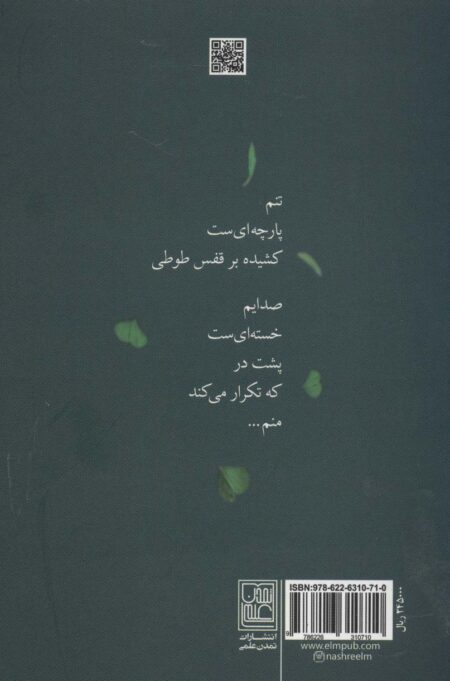 تنم
پارچه‌ای‌ست
کشیده بر قفس طوطی
صدایم
خسته‌ای‌ست
پشت در
که تکرار می‌کند
منم...
ISBN:978-622-6310-71-0
9 786226 310710
www.elmpub.com
@nashreelm
انتشارات
تمدن علمی
۲۴۵۰۰۰ ریال